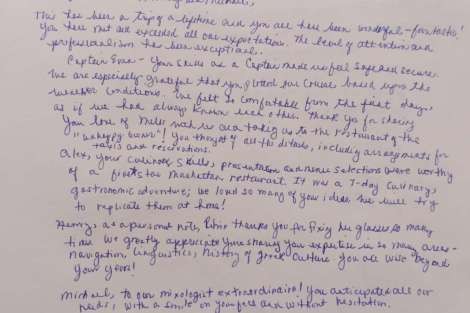 This has been a trip of a lifetime and you all have been wonderful - fantastic!
You have met and exceeded all our expectations. The level of attention and
professionalism has been exceptional.
Captain - Your skills as a Captain made us feel safe and secure.
We are especially grateful that you our cruise based upon the
weather conditions. We felt so comfortable from the first day,
as if we had always known each other. Thank you for sharing
Your love of with us and taking us to the restaurant of the
"unhappy owner"! You thought of all the details, including arrangements for
taxis and reservations.
Alex, your culinary skills, presentation and menu selections were worthy
of a Manhattan restaurant. It was a 7-day culinary,
gastronomic adventure; we loved so many of your ideas we will try
to replicate them at home!
Henry, as a personal note, thanks you for fixing his glasses so many
times. We greatly appreciate your sharing your expertise in so many areas -
navigation, linguistics, history of Greek culture. You are wise beyond
your years!
Michael, to our mixologist extraordinaire! You anticipated all our
needs, with a smile on your face and without hesitation.